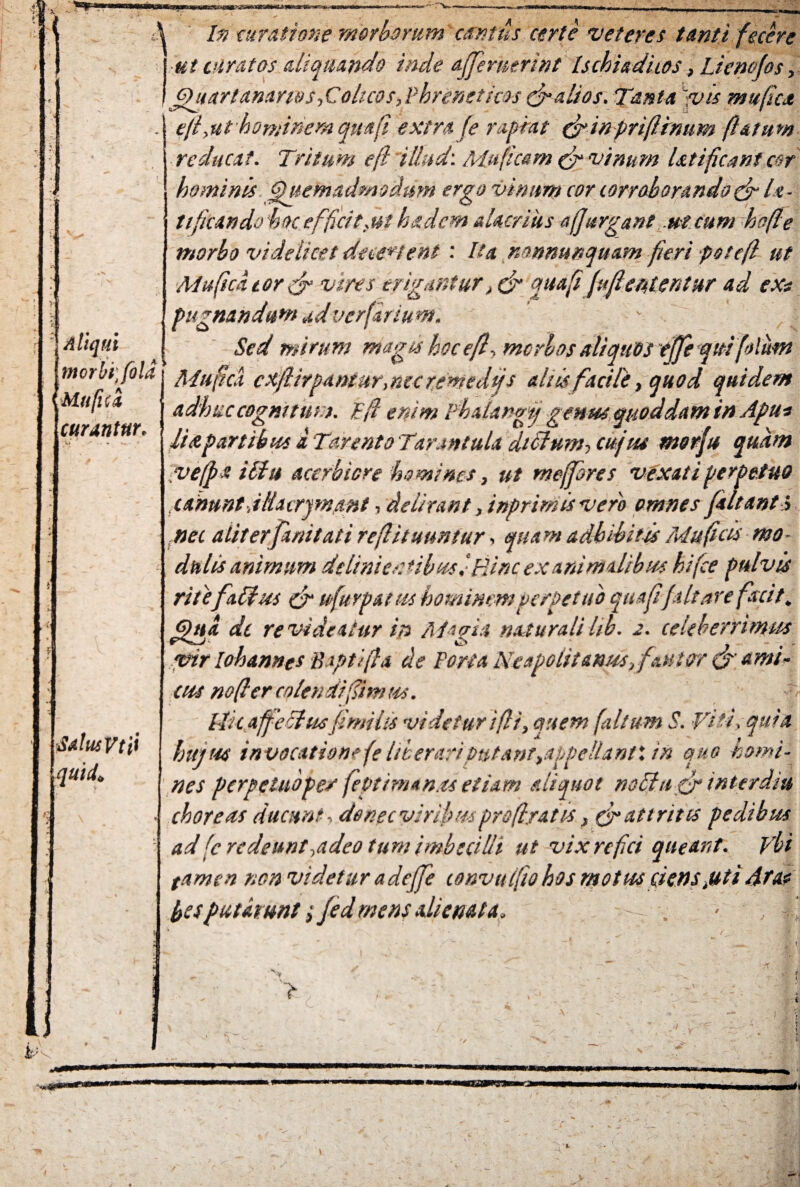 In curatione morborum cantûs certè veteres tanti fecêre
ut curatos aliquando inde asseruerint Ischiadicos, Lienosos,
Quartanarios, Colicos, Phreneticos & alios. Tanta vis musicæ
est, ut hominem quasi extra se rapiat & in pristinum statum
reducat. Tritum est illud: Musicam & vinum lætificant cor
hominis. Quemadmodum ergo vinum cor corroborando & læ-
tificando hoc efficit, ut hædem alacriùs assurgant ut cum hoste
morbo videlicet decertent: Ita nonnunquam fieri potest ut
Musicâ cor & vires erigantur, & quasi sustententur ad ex-
pugnandum adversarium.
Sed mirum magis hoc est, morbos aliquos esse qui solùm
Musicâ exstirpantur, nec remedijs alijs facilè, quod quidem
adhuc cognitum. Est enim Phalangij genus quoddam in Apu-
liæ partibus à Tarento Tarantula dictum, cujus morsu quàm
vespæ ictu acerbiore homines, ut messores vexati perpetuò
canunt, illacrymant, delirant, inprimis verò omnes saltant;
nec aliter sanitati restituuntur, quam adhibitis Musicis mo-
dulis animum delinientibus. Hinc ex animalibus hisce pulvis
ritè factus & usurpatus hominem perpetuò quasi saltare facit.
Quâ de re videatur in Magia naturali lib. 2. celeberrimus
vir Iohannes Baptista de Porta Neapolitanus, fautor & ami-
cus noster colendissimus.
Hic affectus similis videtur isti, quem saltum S. Viti, quia
hujus invocatione se liberari putant, appellant: in quo homi-
nes perpetuò per septimanas etiam aliquot noctu & interdiu
choreas ducunt, donec viribus prostratis, & attritis pedibus
ad se redeunt, adeo tum imbecilli ut vix refici queant. Vbi
tamen non videtur adesse convulsio hos motus ciens, uti Ara-
bes putârunt; sed mens alienata.
Aliqui
morbi, solâ
Musicâ
curantur.
Salus Vtii
quid.